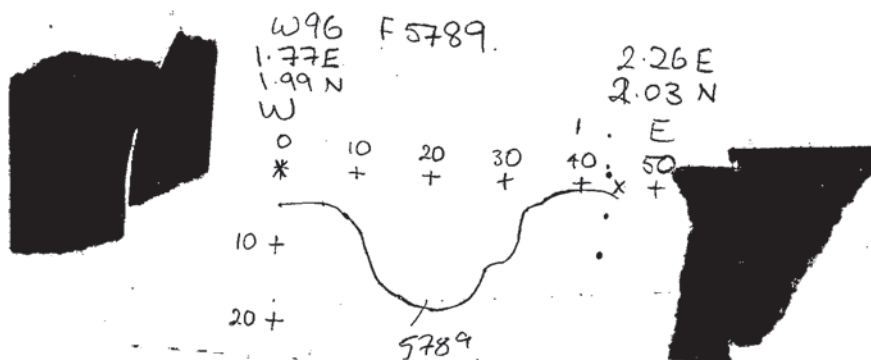 W96 F 5789.
1.77E
1.99 N
W
2.26 E
2.03 N
E
0 10 20 30 40 50
10
20
5789